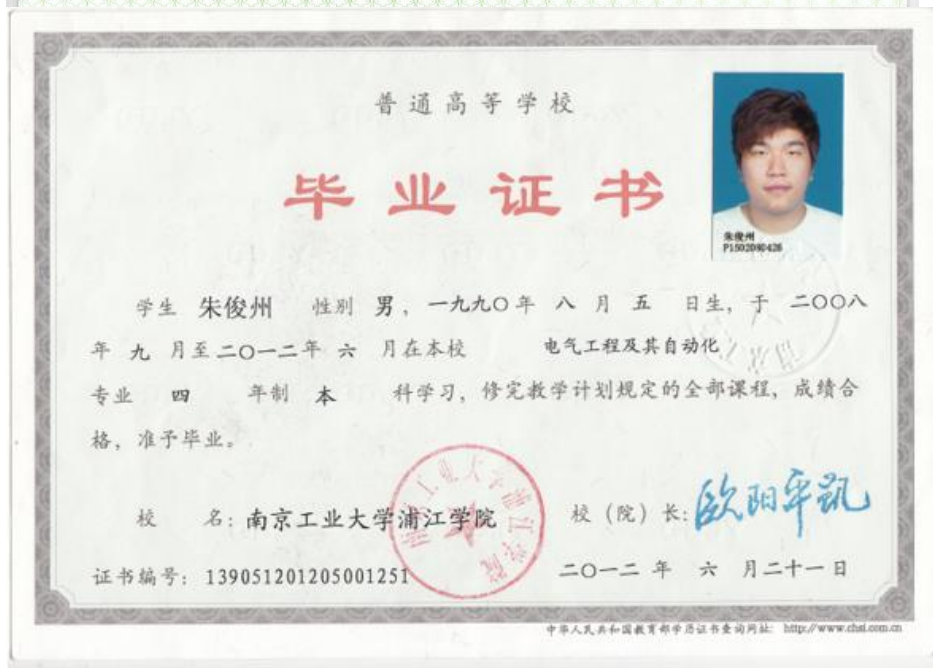 普通高等学校
毕业证书
朱俊州
P1502080426
学生 朱俊州 性别 男，一九九〇年 八 月 五 日生，于 二〇〇八
年 九 月至二〇一二年 六 月在本校 电气工程及其自动化
专业 四 年制 本 科学习，修完教学计划规定的全部课程，成绩合
格，准予毕业。
南京工业大学浦江学院
校 名：南京工业大学浦江学院 校（院）长：欧阳平凯
证书编号：139051201205001251 二〇一二 年 六 月二十一日
中华人民共和国教育部学历证书查询网址： http://www.chsi.com.cn